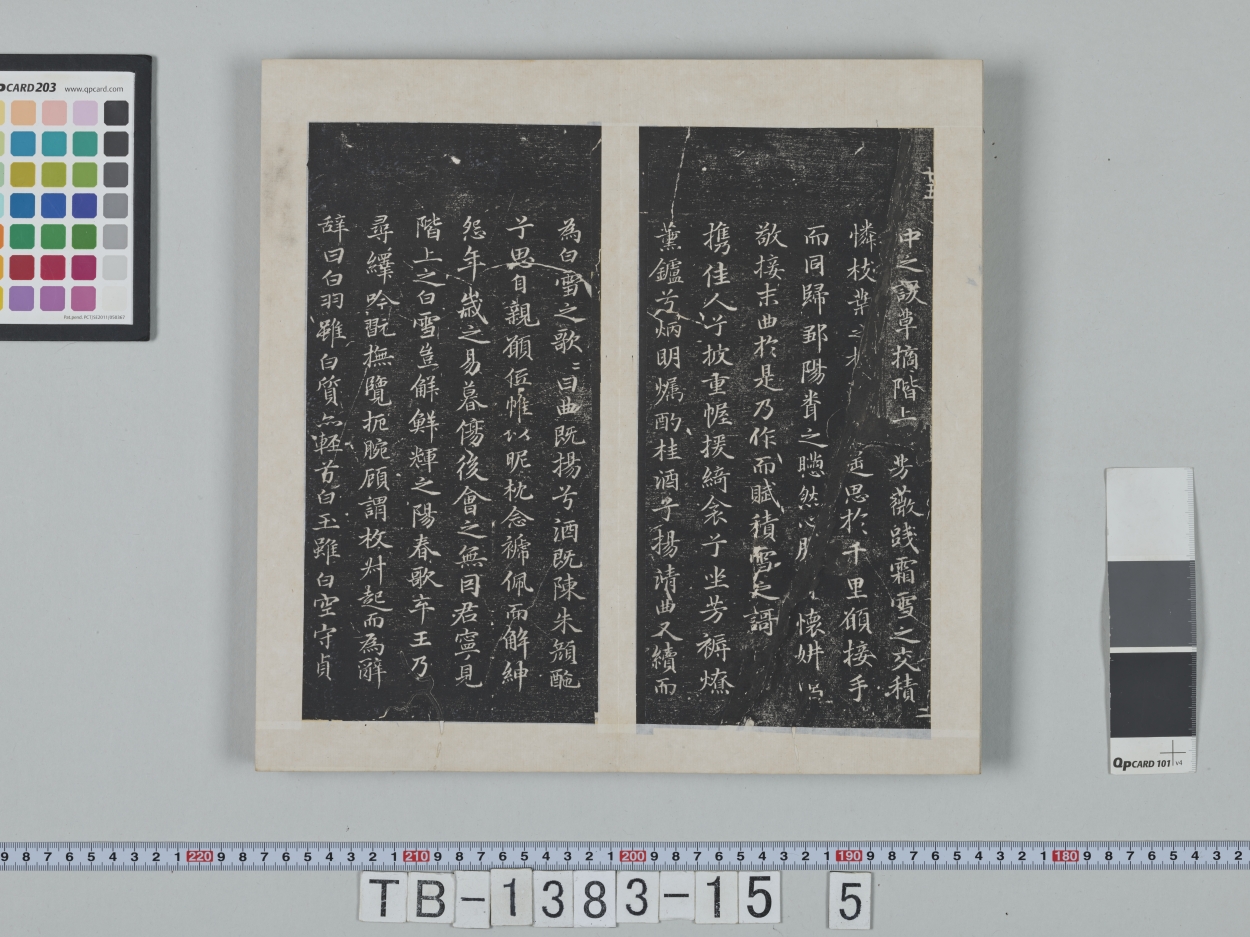 廿五
中之萲草摘階上 芳薇踐霜雪之交積
憐枝葉之相 遥思於千里願接手
而同歸鄒陽聞之懣然心服 懷妍唱
敬接末曲於是乃作而賦積雪之謌
攜佳人兮披重幄援綺衾兮坐芳褥燎
薰鑪兮炳明爥酌桂酒兮揚清曲又續而
為白雪之歌〻曰曲既揚兮酒既陳朱顏酡
兮思自親願低帷以昵枕念褫佩而解紳
怨年歲之易暮傷後會之無因君寧見
階上之白雪豈鮮輝之陽春歌卒王乃
尋繹吟翫撫覽扼腕顧謂枚叔起而為辭
辭曰白羽雖白質亦輕兮白玉雖白空守貞
QPCARD 203
www.qpcard.com
QPCARD 101 v4
9 8 7 6 5 4 3 2 1 220 9 8 7 6 5 4 3 2 1 210 9 8 7 6 5 4 3 2 1 200 9 8 7 6 5 4 3 2 1 190 9 8 7 6 5 4 3 2 1 180 9 8 7 6 5 4 3 2
TB-1383-15 5